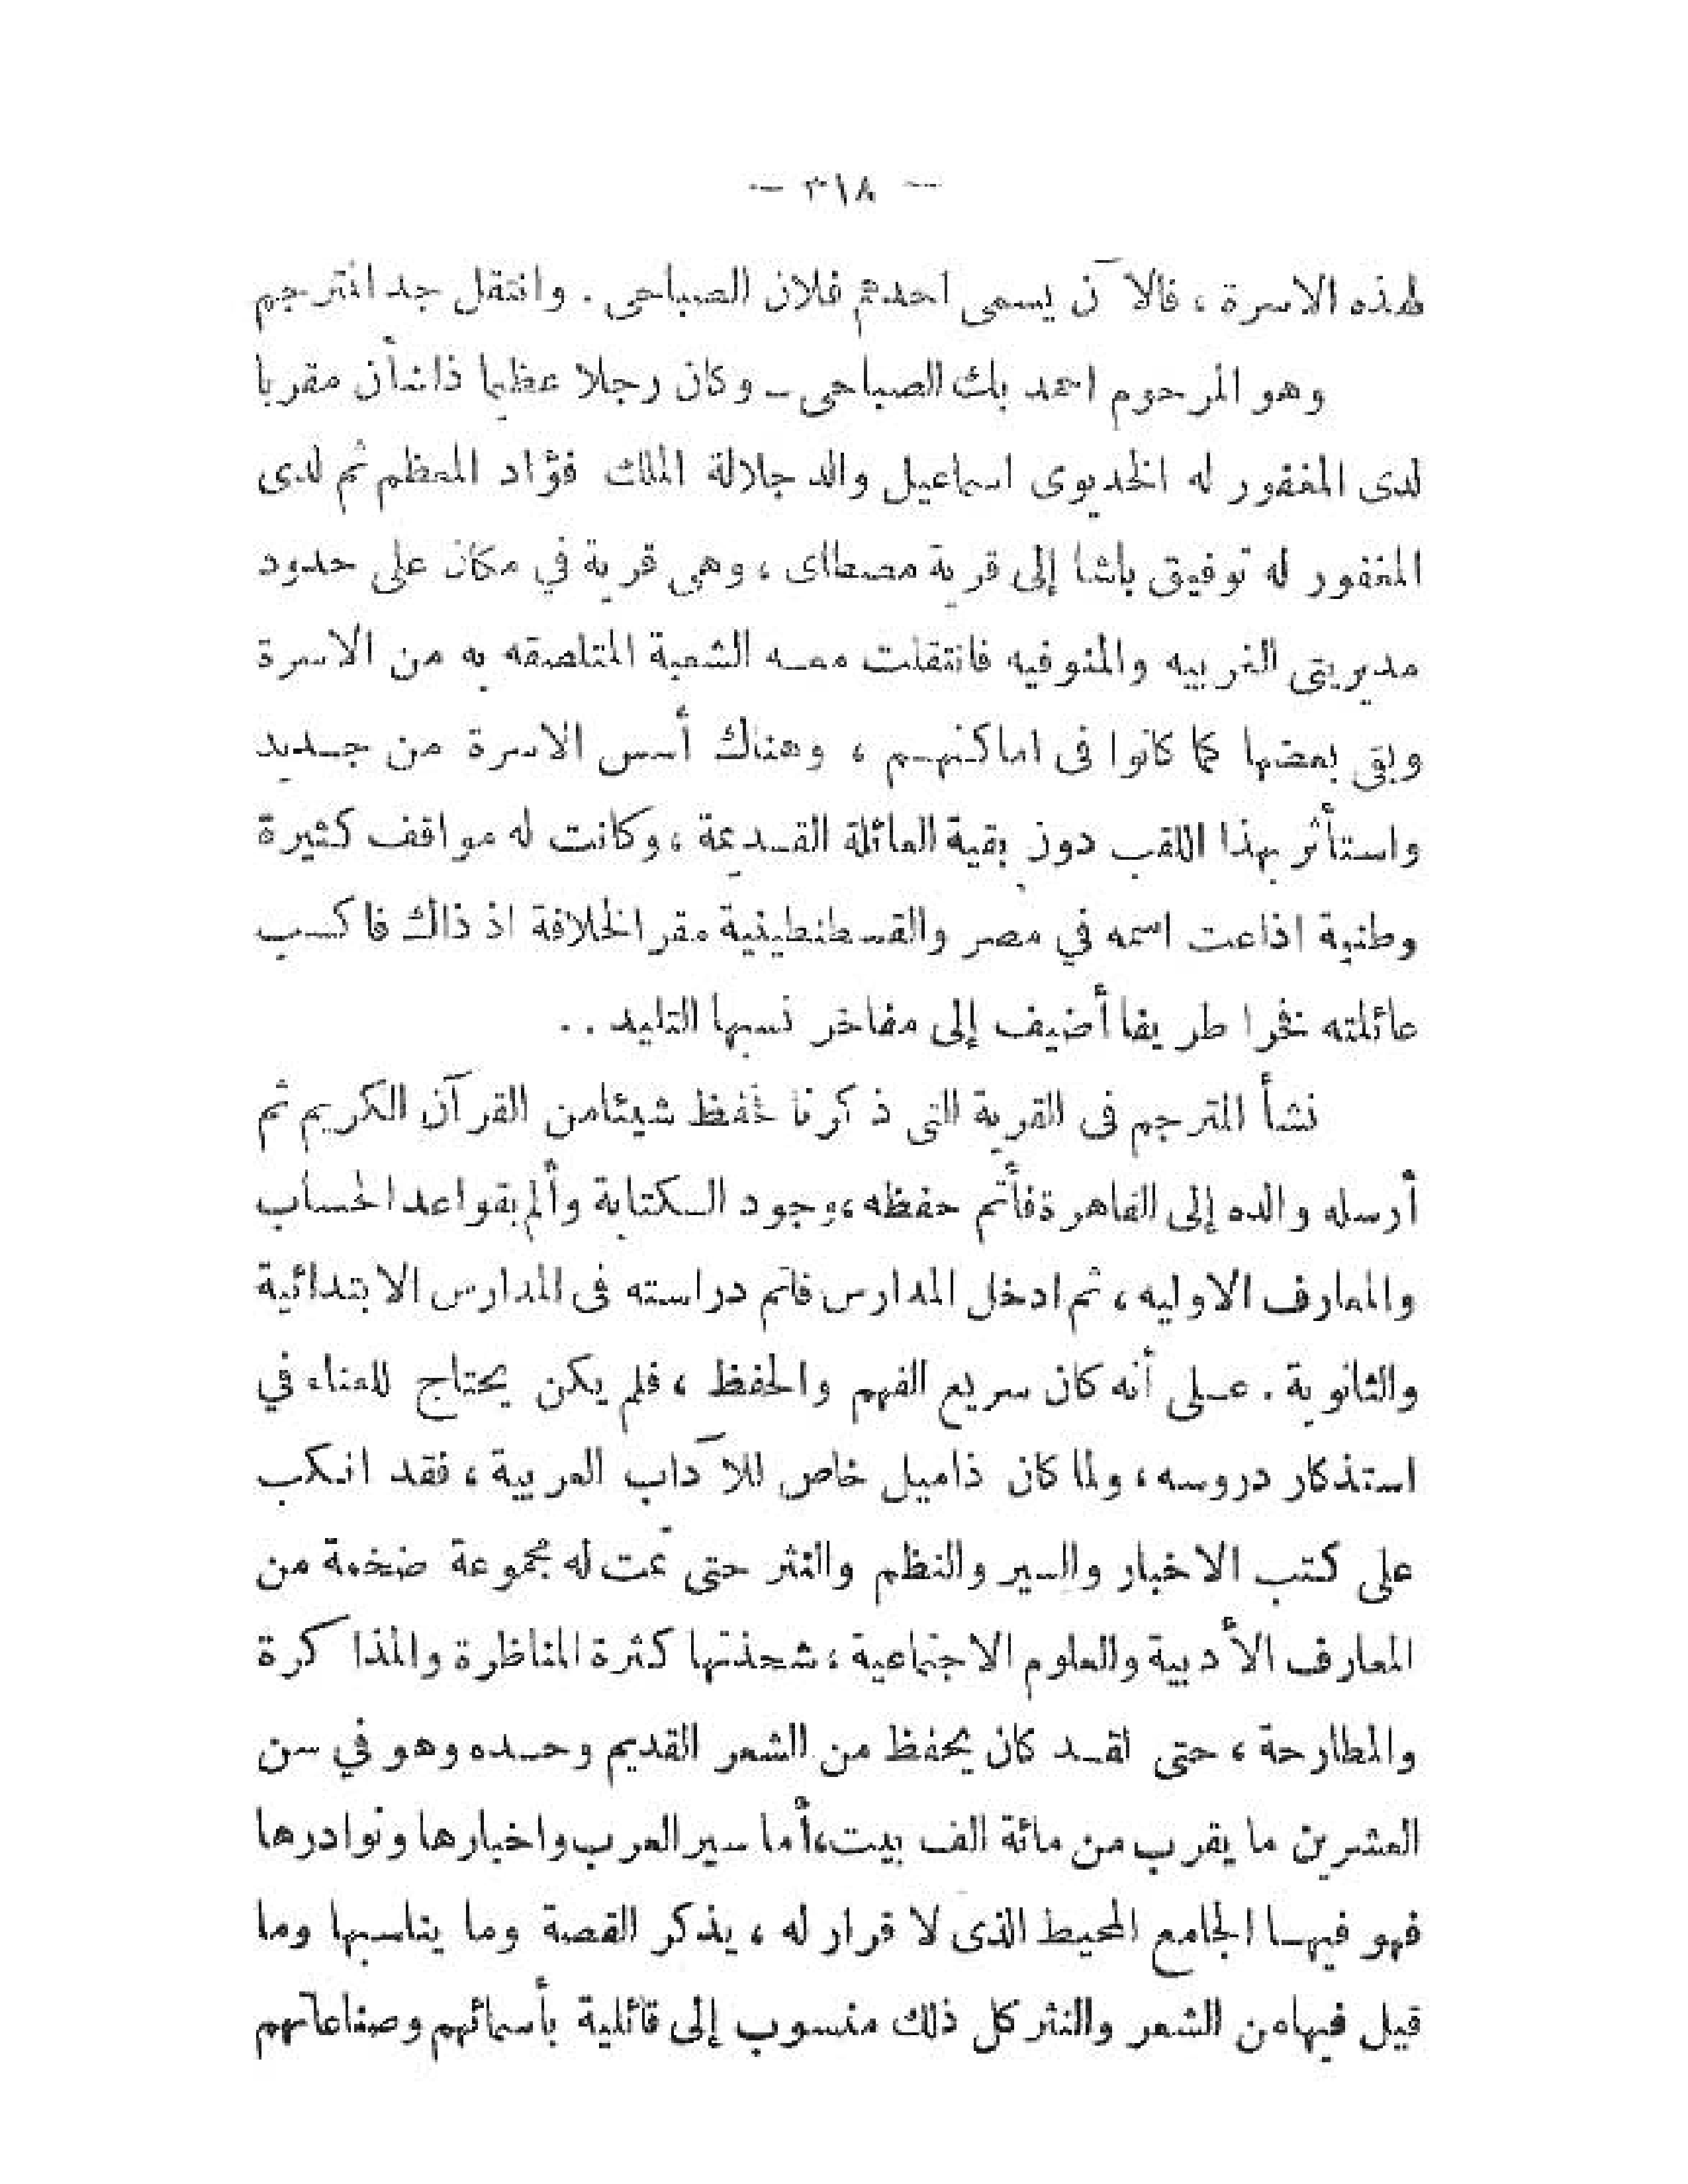 — ٣١٨ —
لهذه الاسرة ، فالآن يسمى احدهم فلان الصباحى . وانتقل جد المترجم
وهو المرحوم احمد بك الصباحى ـ وكان رجلا عظيما ذا شأن مقربا
لدى المغفور له الخديوى اسماعيل والد جلالة الملك فؤاد المعظم ثم لدى
المغفور له توفيق باشا إلى قرية مصطاى ، وهى قرية في مكان على حدود
مديريتى الغربيه والمنوفيه فانتقلت معه الشعبة المتلصقه به من الاسرة
وبقى بعضها كما كانوا فى اماكنهم ، وهناك أسس الاسرة من جديد
واستأثر بهذا اللقب دون بقية العائلة القديمة ، وكانت له مواقف كثيرة
وطنية اذاعت اسمه في مصر والقسطنطينية مقر الخلافة اذ ذاك فاكسب
عائلته فخرا طريفا أضيف إلى مفاخر نسبها التليد . .
نشأ المترجم فى القرية التى ذكرنا فحفظ شيئا من القرآن الكريم ثم
أرسله والده إلى القاهرة فأتم حفظه ، وجود الكتابة وألم بقواعد الحساب
والمعارف الاوليه ، ثم ادخل المدارس فاتم دراسته فى المدارس الابتدائية
والثانوية . على أنه كان سريع الفهم والحفظ ، فلم يكن يحتاج للعناء في
استذكار دروسه ، ولما كان ذا ميل خاص للآداب العربية ، فقد انكب
على كتب الاخبار والسير والنظم والنثر حتى تمت له مجموعة ضخمة من
المعارف الأدبية والعلوم الاجتماعية ، شحذتها كثرة المناظرة والمذاكرة
والمطارحة ، حتى لقد كان يحفظ من الشعر القديم وحده وهو في سن
العشرين ما يقرب من مائة الف بيت ، أما سير العرب واخبارها ونوادرها
فهو فيها الجامع المحيط الذى لا قرار له ، يذكر القصة وما يناسبها وما
قيل فيها من الشعر والنثر كل ذلك منسوب إلى قائلية بأسمائهم وصناعاتهم